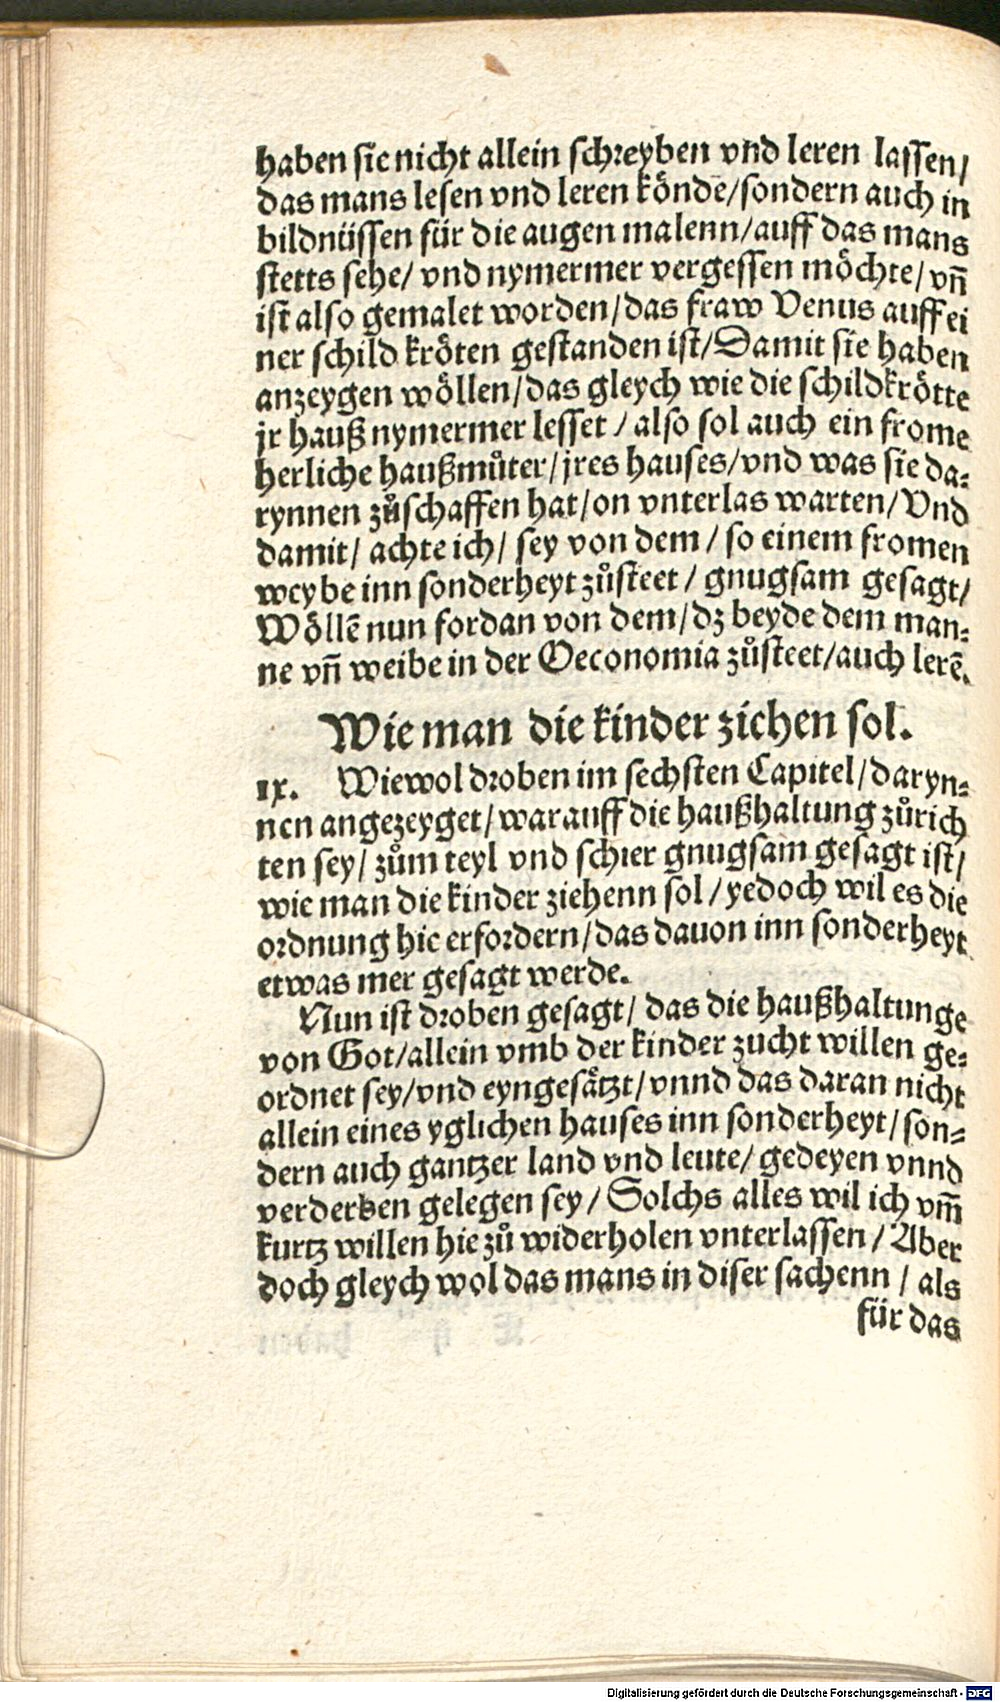 haben sie nicht allein schreyben vnd leren lassen/
das mans lesen vnd leren köndē/sondern auch in
bildnüssen für die augen malenn/auff das mans
stetts sehe/ vnd nymermer vergessen möchte/ vn̄
ist also gemalet worden/das fraw Venus auff ei
ner schild kröten gestanden ist/Damit sie haben
anzeygen wöllen/das gleych wie die schildkrötte
jr hauß nymermer lesset / also sol auch ein frome
herliche haußmůter/jres hauses/vnd was sie da⸗
rynnen zůschaffen hat/on vnterlas warten/Vnd
damit/ achte ich/ sey von dem / so einem fromen
weybe inn sonderheyt zůsteet / gnugsam gesagt/
Wöllē nun fordan von dem/dz beyde dem man⸗
ne vn̄ weibe in der Oeconomia zůsteet/auch lerē.
Wie man die kinder ziehen sol.
ix. Wiewol droben im sechsten Capitel/daryn⸗
nen angezeyget/warauff die haußhaltung zůrich
ten sey/ zům teyl vnd schier gnugsam gesagt ist/
wie man die kinder ziehenn sol /yedoch wil es die
ordnung hie erfordern/das dauon inn sonderheyt
etwas mer gesagt werde.
Nun ist droben gesagt/ das die haußhaltunge
von Got/allein vmb der kinder zucht willen ge⸗
ordnet sey/vnd eyngesåtzt/vnnd das daran nicht
allein eines yglichen hauses inn sonderheyt/son⸗
dern auch gantzer land vnd leute/ gedeyen vnnd
verderben gelegen sey/ Solchs alles wil ich vm̄
kurtz willen hie zů widerholen vnterlassen /Aber
doch gleych wol das mans in diser sachenn / als
für das
Digitalisierung gefördert durch die Deutsche Forschungsgemeinschaft - DFG